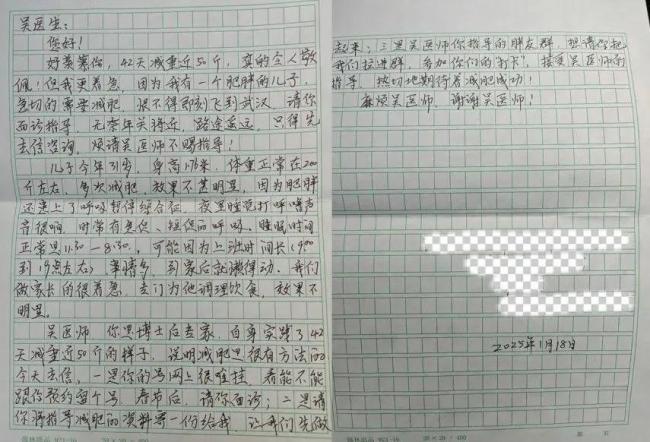 吴医生：
您好！
好羡慕你，42天减重近50斤，真的令人敬
佩！但我更着急，因为我有一个肥胖的儿子，
急切的需要减肥，恨不得即刻飞到武汉，请你
面诊指导，无奈年关将近，路途遥远，只得先
去信咨询，烦请吴医师不赐指导！
儿子今年31岁，身高1.76米，体重正常在200
斤左右，多次减肥，效果不甚明显，因为肥胖
还患上了呼吸暂停综合征，夜里睡觉打呼噜声
音很响，时常有急促、短促的呼吸，睡眠时间
正常是11:30—8:30，可能因为上班时间长（9:00
到19点左右）事情多，到家后就懒得动，我们
做家长的很着急，专门为他调理饮食，效果不
明显。
吴医师，你是博士后专家，自身实践了42
天减重近50斤的样子，说明减肥是很有方法的
今天去信，一是你的号网上很难挂，看能不能
跟你预约登个号，春节后，请你面诊；二是请
你将指导减肥的资料寄一份给我，让我们先做
起来；三是吴医师你指导的胖友群，想请你把
我们拉进群，参加你们的“打卡”，接受吴医师的
指导，热切地期待着减肥成功！
麻烦吴医师，谢谢吴医师！
2025年1月18日
20×20=400
20×20=400